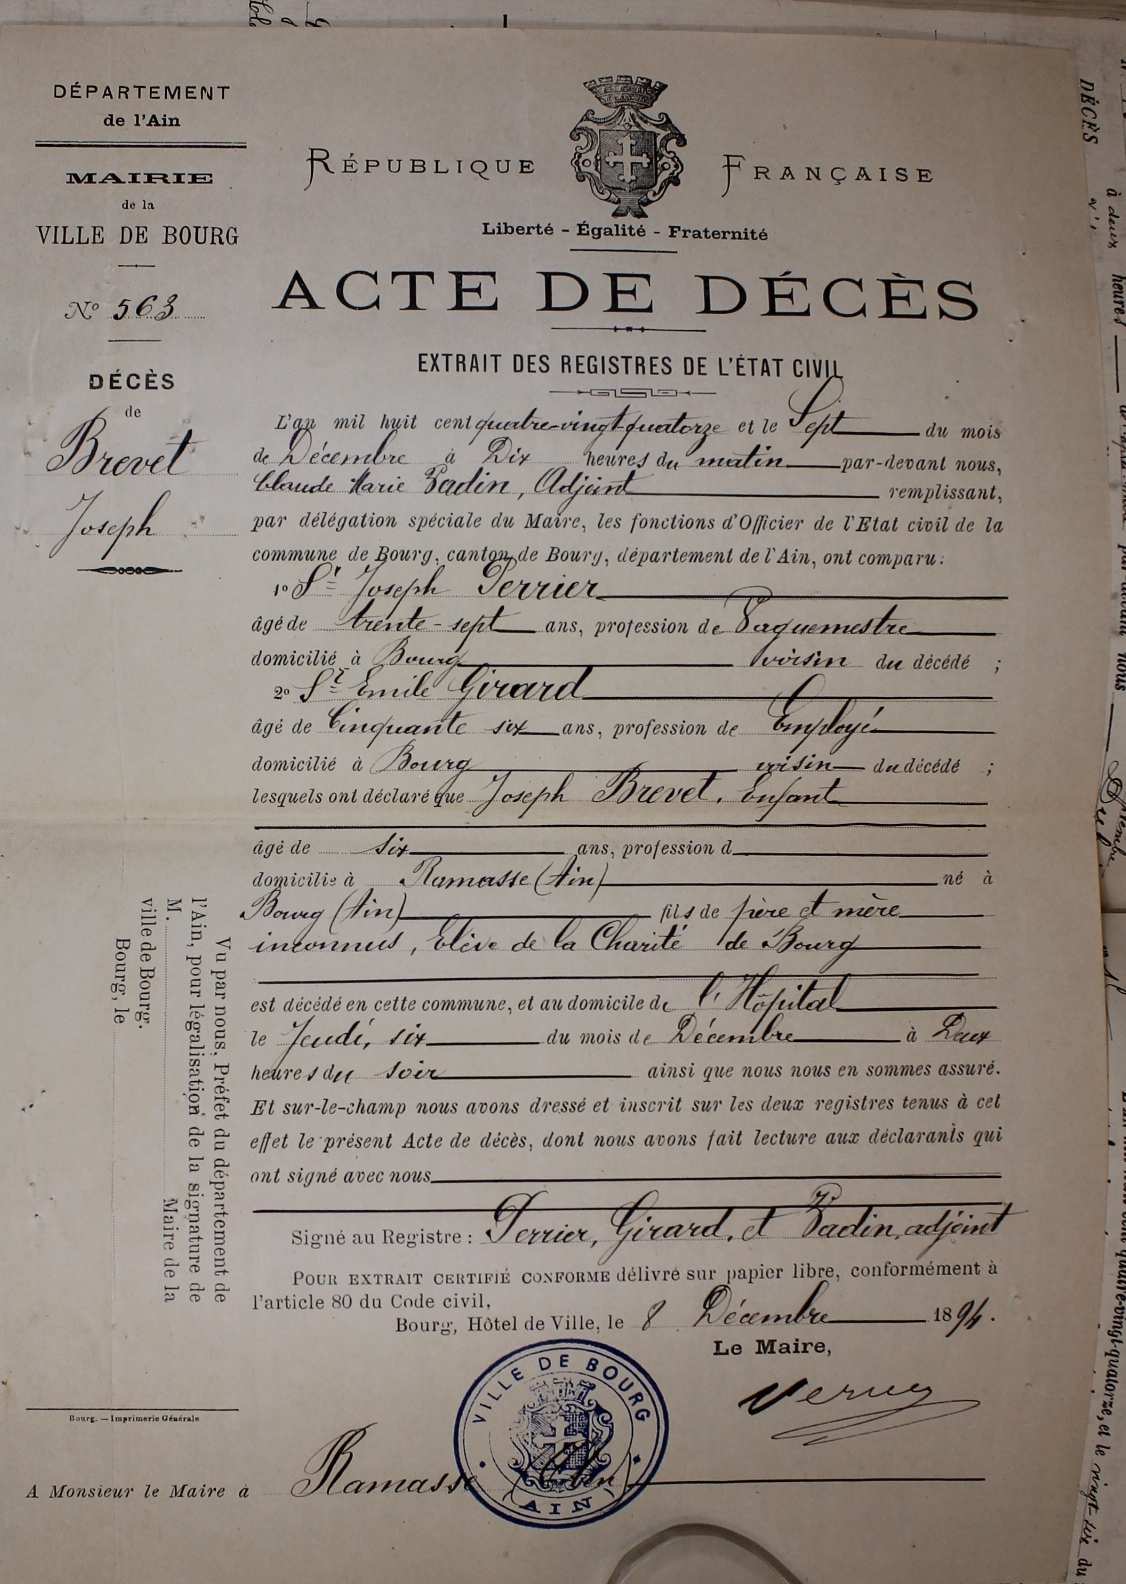 DÉPARTEMENT
de l'Ain
MAIRIE
de la
VILLE DE BOURG
No 563
DÉCÈS
de
Brevet
Joseph
RÉPUBLIQUE FRANÇAISE
Liberté - Égalité - Fraternité
ACTE DE DÉCÈS
EXTRAIT DES REGISTRES DE L'ÉTAT CIVIL
L'an mil huit cent quatre-vingt-quatorze et le Sept du mois
de Décembre à Dix heures du matin par-devant nous,
Claude Marie Padin, Adjoint remplissant,
par délégation spéciale du Maire, les fonctions d'Officier de l'Etat civil de la
commune de Bourg, canton de Bourg, département de l'Ain, ont comparu:
1o Sr Joseph Perrier
âgé de trente-sept ans, profession de Vaguemestre
domicilié à Bourg voisin du décédé ;
2o Sr Emile Girard
âgé de Cinquante six ans, profession de Employé
domicilié à Bourg voisin du décédé ;
lesquels ont déclaré que Joseph Brevet, Enfant
âgé de six ans, profession d
domicilié à Ramasse (Ain) né à
Bourg (Ain) fils de père et mère
inconnus, Elève de la Charité de Bourg
est décédé en cette commune, et au domicile de l'Hôpital
le Jeudi, six du mois de Décembre à Deux
heures du soir ainsi que nous nous en sommes assuré.
Et sur-le-champ nous avons dressé et inscrit sur les deux registres tenus à cet
effet le présent Acte de décès, dont nous avons fait lecture aux déclarants qui
ont signé avec nous
Signé au Registre : Perrier, Girard, et Padin, adjoint
POUR EXTRAIT CERTIFIÉ CONFORME délivré sur papier libre, conformément à
l'article 80 du Code civil,
Bourg, Hôtel de Ville, le 8 Décembre 1894.
Le Maire,
VILLE DE BOURG
(AIN)
Vu par nous, Préfet du département de
l'Ain, pour légalisation de la signature de
M. Maire de la
ville de Bourg.
Bourg, le
Bourg. — Imprimerie Générale
A Monsieur le Maire à Ramasse (Ain)
DÉCÈS
à deux heures
par devant nous
quatre-vingt-quatorze, et le vingt-six du